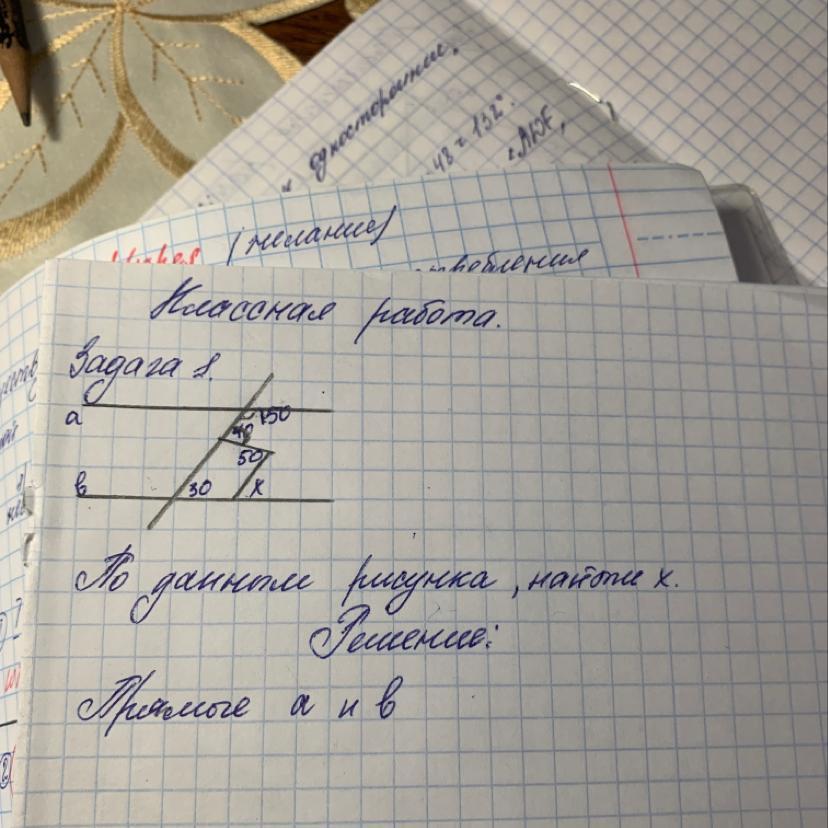 односторонние.
48 = 132°.
(желание)
Классная работа.
Задача 1.
а
150
40
50
в
30
х
По данным рисунка, найти х.
Решение:
Прямые а и в